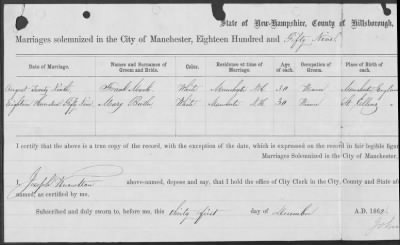 State of New-Hampshire, County of Hillsborough,
Marriages solemnized in the City of Manchester, Eighteen Hundred and Fifty Nine
Date of Marriage. Names and Surnames of Groom and Bride. Color. Residence at time of Marriage. Age of each. Occupation of Groom. Place of Birth of each.
August Twenty Ninth Frank White Manchester N.H. 30 Manchester England
Eighteen Hundred Fifty Nine Mary White Manchester N.H. 30 St
I certify that the above is a true copy of the record, with the exception of the date, which is expressed on the record in fair legible figur
Marriages Solemnized in the City of Manchester,
I, Joseph above-named, depose and say, that I hold the office of City Clerk in the City, County and State af
named, as certified by me.
Subscribed and duly sworn to, before me, this thirty first day of December A.D. 186
John